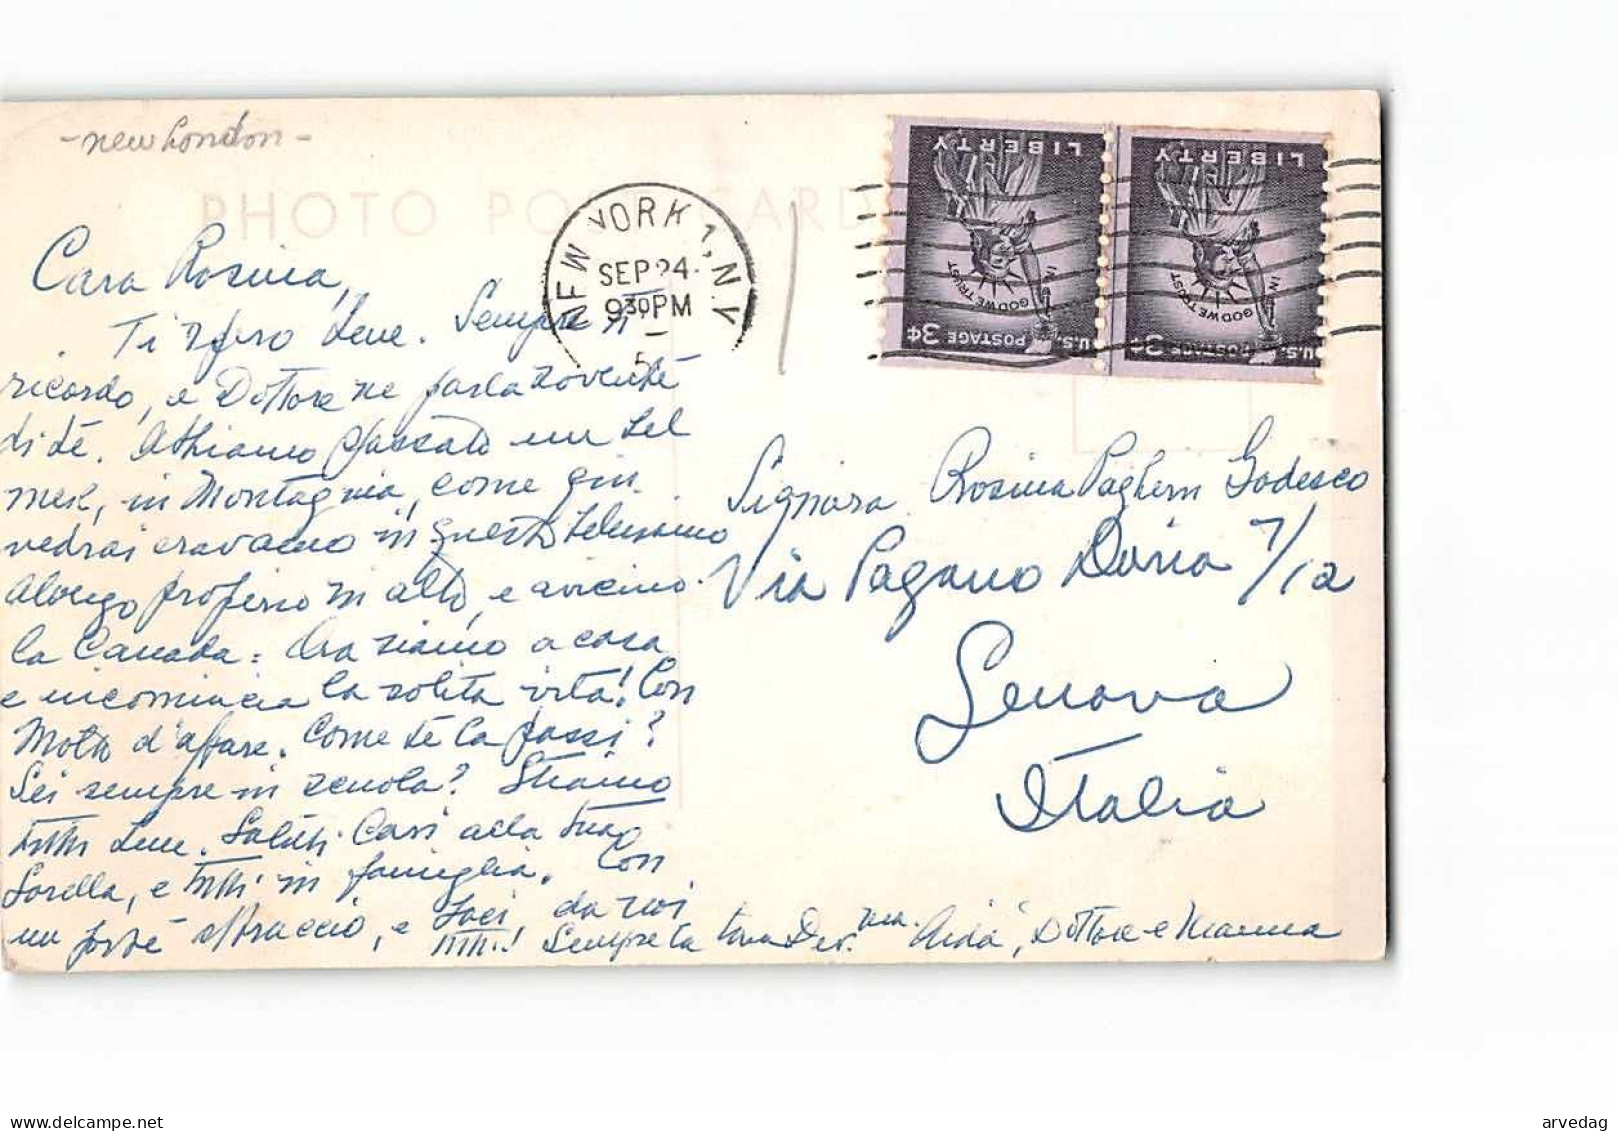 - new London -
PHOTO POST CARD
NEW YORK 1, N.Y.
SEP 24
930 PM
LIBERTY
IN GOD WE TRUST
U.S. POSTAGE 3¢
LIBERTY
IN GOD WE TRUST
U.S. POSTAGE 3¢
Cara Rosina,
Ti spero bene. Sempre ti
ricordo, e Dottore ne parla sovente
di te. Abbiamo passato un bel
mese, in Montagnia, come
vedrai eravamo in questo bellissimo
alorgo proprio in alto, e vicino
la Canada = Ora siamo a casa
e incomincia la solita vita! Con
Molto d'affare. Come te la passi?
Sei sempre in scuola? Stiamo
tutti bene. Saluti Cari alla tua
Sorella, e tutti in famiglia. Con
un forte abbraccio, e baci, da noi
tutti! Sempre la tua Aida, Dottore e Mamma
Signora Rosina Paghern Godesco
Via Pagano Doria 7/12
Genova
Italia
www.delcampe.net
arvedag